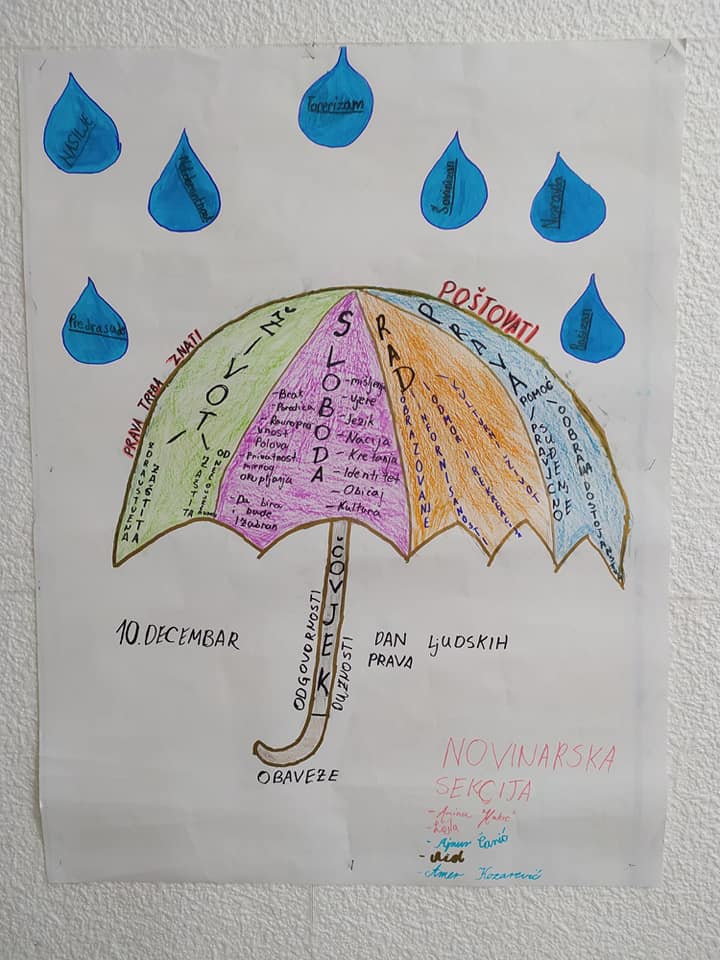 NASILJE
Terorizam
Šovinizam
Nepravda
Predrasude
Rasizam
PRAVA TREBA ZNATI
POŠTOVATI
ŽIVOT
ZDRAVSTVENA
ZAŠTITA
ZAŠTITA
OD
SLOBODA
-Brak
-Porodica
-Ravnopra
vnost
Polova
-Privatnost
mirnog
okupljanja
-Da bira
i bude
izabran
-mišljenje
-Vjere
-Jezik
-Nacija
-Kretanja
-Identitet
-Običaj
-Kultura
RAD
OBRAZOVANJE
INFORMISANOST
ODMOR I REKREACIJA
PRAVA
POMOĆ
SUĐENJE
PRAVIČNO
ODBRANA DOSTOJANSTVA
ČOVJEK
ODGOVORNOSTI
DUŽNOSTI
OBAVEZE
10. DECEMBAR
DAN LJUDSKIH
PRAVA
NOVINARSKA
SEKCIJA
-Amina
-Lejla
-Ajnur
-Amer Kozarević